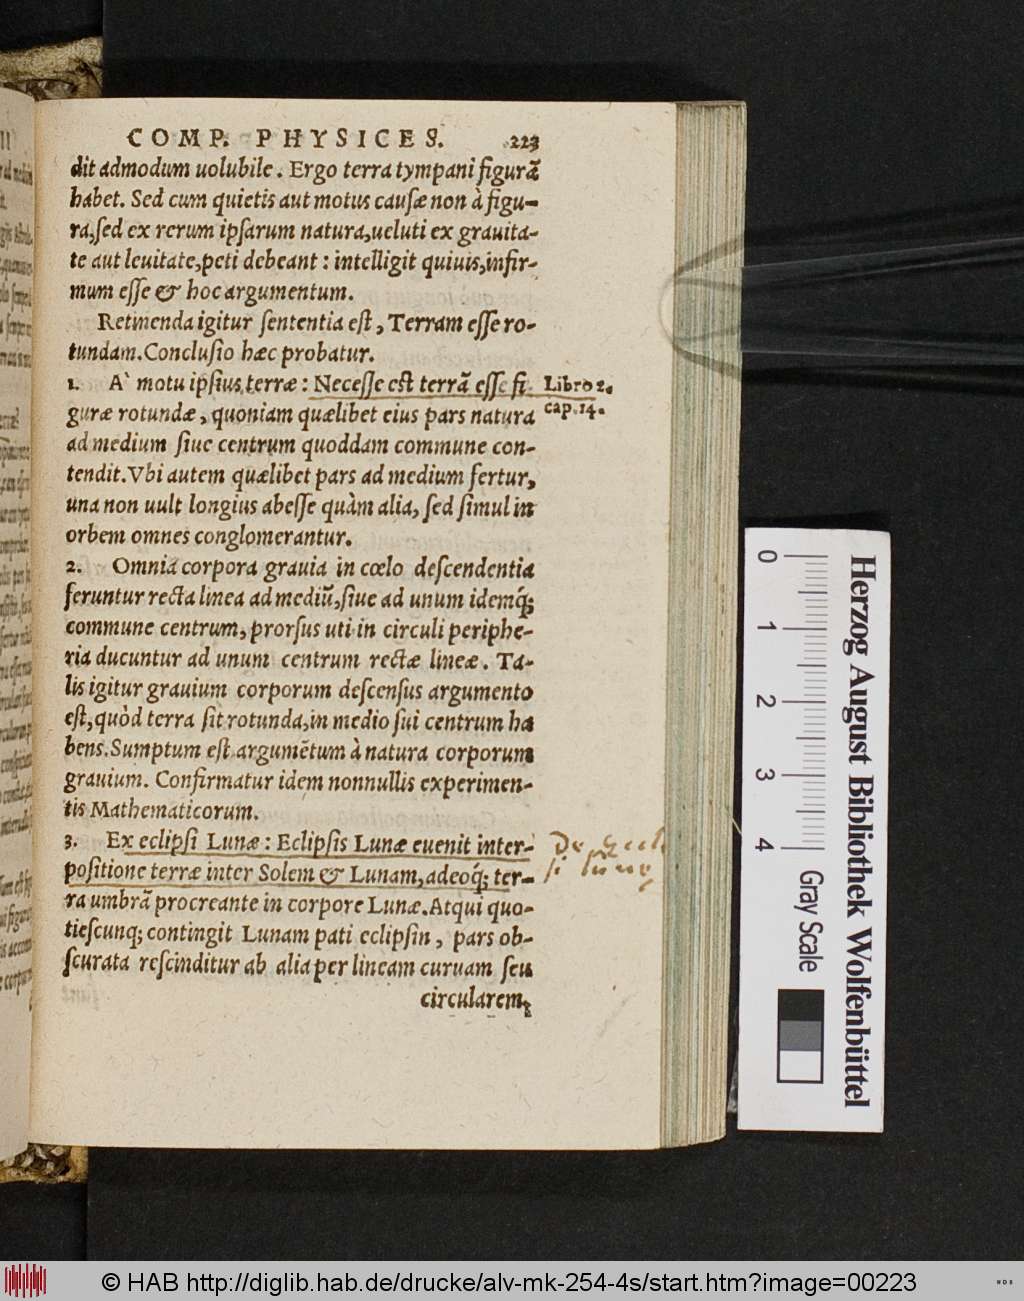 COMP. PHYSICES. 223
dit admodum uolubile. Ergo terra tympani figurã
habet. Sed cum quietis aut motus causæ non à figu-
ra, sed ex rerum ipsarum natura, ueluti ex grauita-
te aut leuitate, peti debeant: intelligit quiuis, infir-
mum esse & hoc argumentum.
Retinenda igitur sententia est, Terram esse ro-
tundam. Conclusio hæc probatur.
1. A` motu ipsius terræ: Necesse est terrã esse fi- Libro 2.
guræ rotundæ, quoniam quælibet eius pars natura cap. 14.
ad medium siue centrum quoddam commune con-
tendit. Vbi autem quælibet pars ad medium fertur,
una non uult longius abesse quàm alia, sed simul in
orbem omnes conglomerantur.
2. Omnia corpora grauia in cœlo descendentia
feruntur recta linea ad mediũ, siue ad unum idemq́;
commune centrum, prorsus uti in circuli periphe-
ria ducuntur ad unum centrum rectæ lineæ. Ta-
lis igitur grauium corporum descensus argumento
est, quòd terra sit rotunda, in medio sui centrum ha
bens. Sumptum est argumẽtum à natura corporum
grauium. Confirmatur idem nonnullis experimen-
tis Mathematicorum.
3. Ex eclipsi Lunæ: Eclipsis Lunæ euenit inter-
positione terræ inter Solem & Lunam, adeoq́; ter-
ra umbrã procreante in corpore Lunæ. Atqui quo-
tiescunq; contingit Lunam pati eclipsin, pars ob-
scurata rescinditur ab alia per lineam curuam seu
circularem,
0 1 2 3 4
Gray Scale
Herzog August Bibliothek Wolfenbüttel
© HAB http://diglib.hab.de/drucke/alv-mk-254-4s/start.htm?image=00223